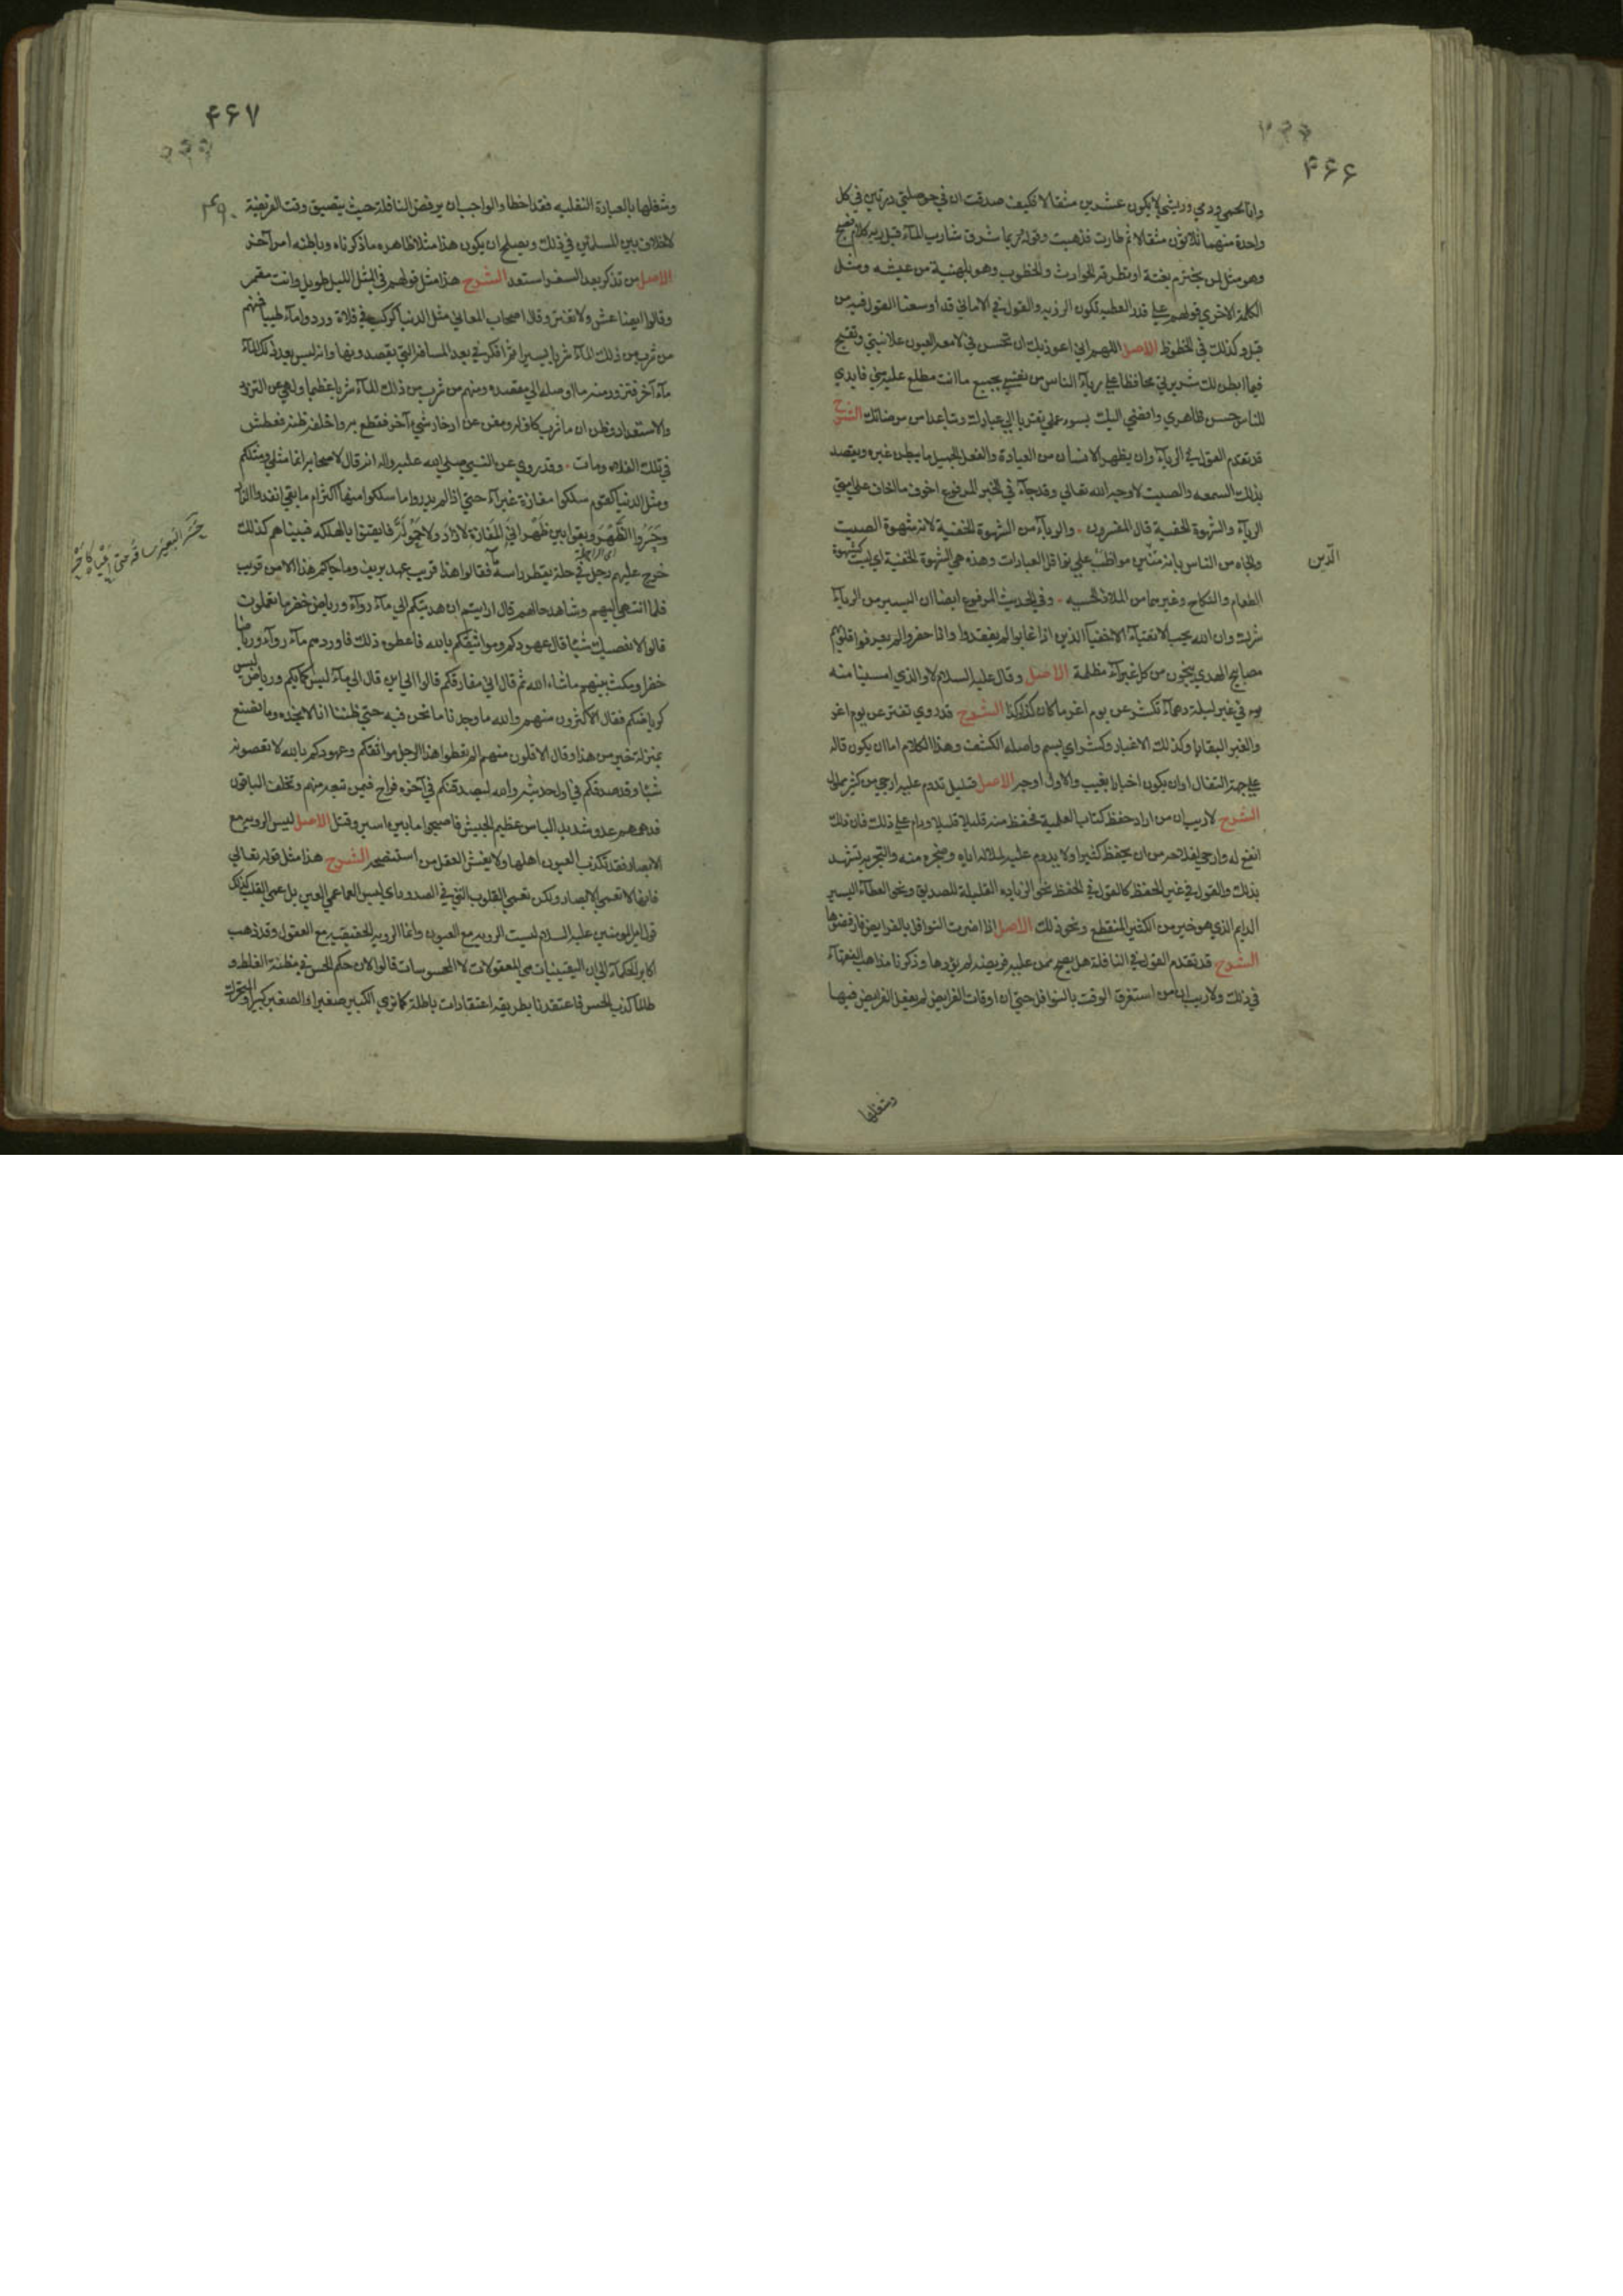 ۴۶۶
وانا كلحمي ودمي وريشي لا يكون عشرين مثقالا فكيف صدقت ان في حوصلتي درتين في كل
واحدة منهما ثلاثون مثقالا ثم طارت فذهبت وقوله ربما شرق شارب الماء قبل ريه كلام فصيح
وهو مثل لمن يخترم بغتة او تطرقه الحوادث والخطوب وهو بلهنية من عيشه ومثل
الكلمة الاخرى قولهم على قدر العطية تكون الرزية والقول في الاماني قد اوسعنا القول فيه من
قبل وكذلك في الحظوظ الاصل اللهم اني اعوذ بك ان تحسن في لامعة العيون علانيتي وتقبح
فيما ابطن لك سريرتي محافظا على رياء الناس من نفسي بجميع ما انت مطلع عليه مني فابدي
للناس حسن ظاهري وافضي اليك بسوء عملي تقربا الى عبادك وتباعدا من مرضاتك الشرح
قد تقدم القول في الرياء وان يظهر الانسان من العبادة والفعل الجميل ما يبطن غيره ويقصد
بذلك السمعة والصيت لا وجه الله تعالى وقد جاء في الخبر المرفوع اخوف ما اخاف على امتي
الرياء والشهوة الخفية قال المفسرون والرياء من الشهوة الخفية لانه شهوة الصيت
والجاه من الناس بانه متين مواظب على نوافل العبادات وهذه هي الشهوة الخفية اي ليست كشهوة
الدين
الطعام والنكاح وغيرهما من الملاذ الحسية وفي الحديث المرفوع ايضا ان اليسير من الرياء
شرك وان الله يحب الاتقياء الاخفياء الذين اذا غابوا لم يفقدوا واذا حضروا لم يعرفوا قلوبهم
مصابيح الهدى ينجون من كل غبراء مظلمة الاصل وقال عليه السلام لا والذي امسينا منه
في غبر ليلة دهماء تكشر عن يوم اغر ما كان كذا وكذا الشرح قد روي تفتر عن يوم اغر
والغبر البقايا وكذلك الاغبار وكشر اي بسم واصله الكشف وهذا الكلام اما ان يكون قاله
على جهة التفال او ان يكون اخبارا بغيب والاول اوجه الاصل قليل تدوم عليه ارجى من كثير مملول
الشرح لا ريب ان من اراد حفظ كتاب العلمية فحفظ منه قليلا قليلا ودام على ذلك فان ذلك
انفع له وارجى لفلاحه من ان يحفظ كثيرا ولا يدوم عليه لملاله اياه وضجره منه والتجربة تشهد
بذلك والقول في غير الحفظ كالقول في الحفظ نحو الزيادة القليلة للصديق ونحو العطاء اليسير
الدايم الذي هو خير من الكثير المنقطع ونحو ذلك الاصل اذا اضرت النوافل بالفرايض فارفضوها
الشرح قد تقدم القول في النافلة هل يصح ممن عليه فريضة لم يؤدها وذكرنا مذاهب الفقهاء
في ذلك ولا ريب ان من استغرق الوقت بالنوافل حتى ان اوقات الفرايض لم يفعل الفرايض فيها
وشغلها
۴۶۷
وشغلها بالعبادة النفلية فقد اخطا والواجب ان يرفض النافلة حيث يتضيق وقت الفريضة
لا خلاف بين المسلمين في ذلك ويصلح ان يكون هذا مثلا ظاهره ما ذكرناه وباطنه امر آخر
الاصل من تذكر بعد السفر استعد الشرح هذا مثل قولهم في المثل الليل طويل وانت مقمر
وقالوا ايضا عش ولا تغتر وقال اصحاب المعاني مثل الدنيا كركب في فلاة وردوا ماء طيبا فمنهم
من شرب من ذلك الماء شربا يسيرا ثم افكر في بعد المسافة التي يقصدونها وانه ليس بعد ذلك الماء
ماء آخر فتزود منه ما اوصله الى مقصده ومنهم من شرب من ذلك الماء شربا عظيما ولهى عن التزود
والاستعداد وظن ان ما شرب كاف له ومغن عن ادخار شيء آخر فقطع به واخلفه ظنه فعطش
في تلك الفلاة ومات وقد روي عن النبي صلى الله عليه واله انه قال لاصحابه انما مثلي ومثلكم
ومثل الدنيا كقوم سلكوا مفازة غبراء حتى اذا لم يدروا ما سلكوا منها اكثر ام ما بقي انفدوا الزاد
وحسروا الظهر وبقوا بين ظهراني المفازة لا زاد ولا حمولة فايقنوا بالهلكة فبيناهم كذلك
خرج عليهم رجل في حلة يقطر راسه ماء فقالوا هذا قريب عهد بريف وما جاءكم هذا الا من قريب
فلما انتهى اليهم وشاهد حالهم قال ارايتم ان هديتكم الى ماء رواء ورياض خضر ما تعملون
قالوا لا نعصيك شيئا قال عهودكم ومواثيقكم بالله فاعطوه ذلك فاوردهم ماء رواء ورياضا
خضرا ومكث بينهم ما شاء الله ثم قال اني مفارقكم قالوا الى اين قال الى ماء ليس كمائكم ورياض ليس
كرياضكم فقال الاكثرون منهم والله ما وجدنا ما نحن فيه حتى ظننا انا لا نجده وما نصنع
بمنزلة خير من هذا وقال الاقلون منهم الم تعطوا هذا الرجل مواثقكم وعهودكم بالله لا تعصونه
شيئا وقد صدقكم في اول حديثه والله ليصدقنكم في آخره فراح فيمن تبعه منهم وتخلف الباقون
فدهمهم عدو شديد الباس عظيم الجيش فاصبحوا ما بين اسير وقتيل الاصل ليس الروية مع
الابصار فقد تكذب العيون اهلها ولا يغش العقل من استنصحه الشرح هذا مثل قوله تعالى
فانها لا تعمى الابصار ولكن تعمى القلوب التي في الصدور اي ليس العما عمى العين بل عمى القلب كذلك
قول امير المومنين عليه السلام ليست الروية مع العيون وانما الروية الحقيقية مع العقول وقد ذهب
اكابر الحكماء الى ان اليقينيات هي المعقولات لا المحسوسات قالوا لان حكم الحس في مظنة الغلط و
طالما كذب الحس فاعتقدنا بطريقه اعتقادات باطلة كما نرى الكبير صغيرا والصغير كبيرا والمتحرك